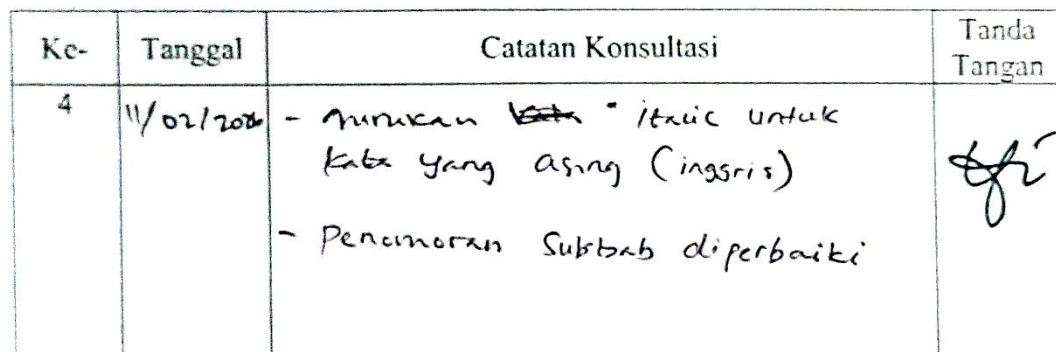 Ke- Tanggal Catatan Konsultasi Tanda Tangan
4 11/02/2020 - italic untuk
kata yang asing (inggris)
- Penomoran Subbab diperbaiki